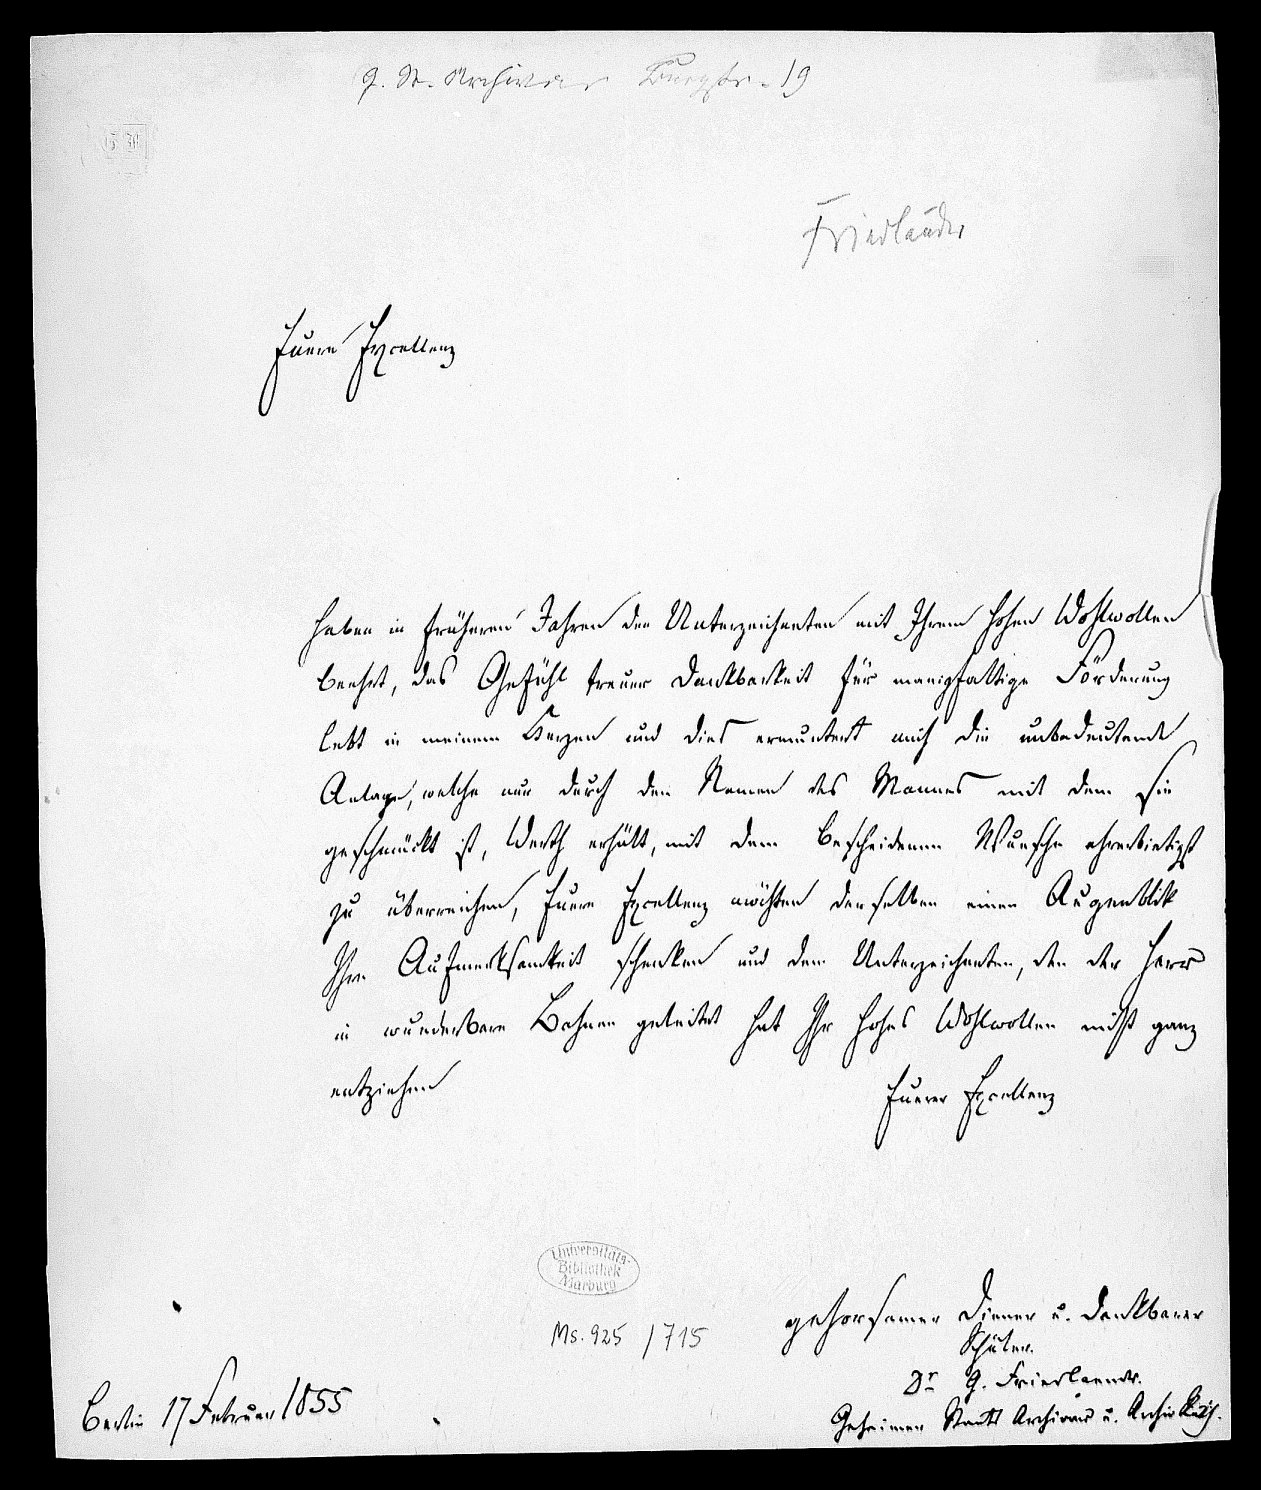 g. St. Archivar Burgstr. 19
G F
Friedländer
Euere Excellenz
haben in früheren Jahren den Unterzeichneten mit Ihrem hohen Wohlwollen
beehrt, das Gefühl treuer Dankbarkeit für manigfaltige Förderung
lebt in meinem Herzen und dies ermuntert mich die unbedeutende
Anlage, welche nur durch den Namen des Mannes mit dem sie
geschmückt ist, Werth erhält, mit dem bescheidenen Wunsche ehrerbietigst
zu überreichen, Euere Excellenz möchten derselben einen Augenblik
Ihre Aufmerksamkeit schenken und dem Unterzeichneten, den der Herr
in wunderbare Bahnen geleitet hat Ihr hohes Wohlwollen nicht ganz
entziehen
Euerer Excellenz
Universitäts-
Bibliothek
Marburg
gehorsamer Diener u. dankbarer
Schüler.
Ms. 925 / 715
Dr G. Friedlaender.
Berlin 17 Februar 1855
Geheimer Staats Archivar u. Archiv